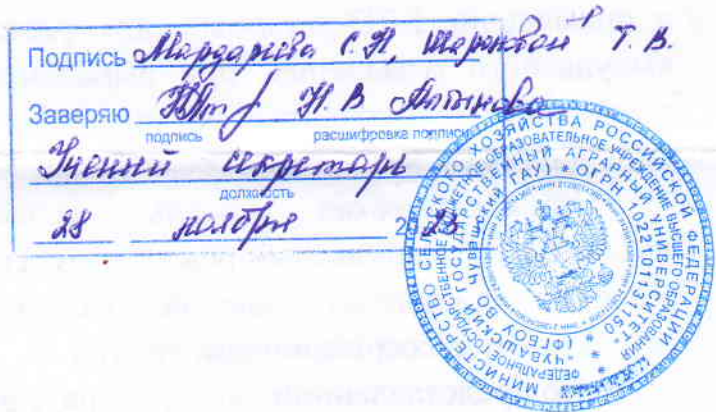 Подпись Мардарьева С.Н, Шаронван Т.В.
Заверяю Н.В Алтынова
подпись расшифровка подписи
Ученый секретарь
должность
28 ноября 2023
МИНИСТЕРСТВО СЕЛЬСКОГО ХОЗЯЙСТВА РОССИЙСКОЙ ФЕДЕРАЦИИ
ФЕДЕРАЛЬНОЕ ГОСУДАРСТВЕННОЕ БЮДЖЕТНОЕ ОБРАЗОВАТЕЛЬНОЕ УЧРЕЖДЕНИЕ ВЫСШЕГО ОБРАЗОВАНИЯ
"ЧУВАШСКИЙ ГОСУДАРСТВЕННЫЙ АГРАРНЫЙ УНИВЕРСИТЕТ"
(ФГБОУ ВО ЧУВАШСКИЙ ГАУ) * ОГРН 1022101131150 *